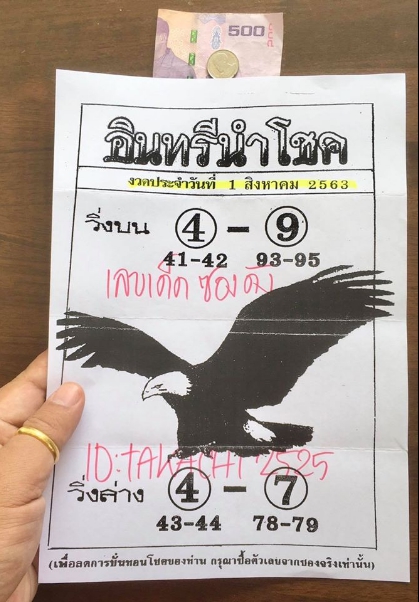 500
อินทรีนำโชค
งวดประจำวันที่ 1 สิงหาคม 2563
วิ่งบน 4 - 9
41-42 93-95
เลขเด็ด ซองดัง
ID: TAKACHI 2525
วิ่งล่าง 4 - 7
43-44 78-79
(เพื่อลดการบั่นทอนโชคของท่าน กรุณาซื้อตัวเลขจากซองจริงเท่านั้น)